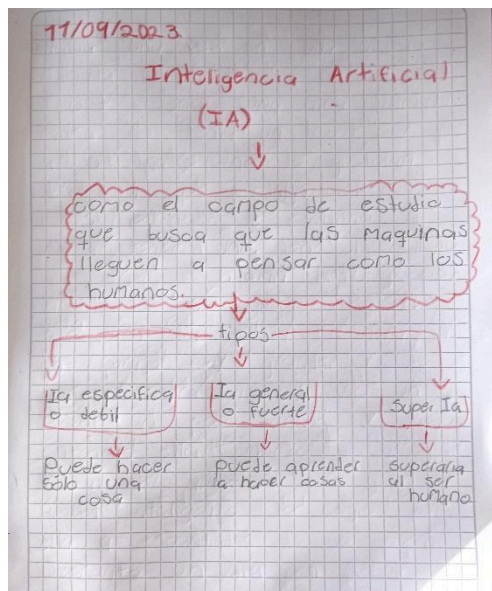 11/09/2023
Inteligencia Artificial
(IA)
como el campo de estudio
que busca que las maquinas
lleguen a pensar como los
humanos.
tipos
Ia especifica
o debil
Ia general
o fuerte
Super Ia
Puede hacer
sólo una
cosa
puede aprender
a hacer cosas
superaria
al ser
humano